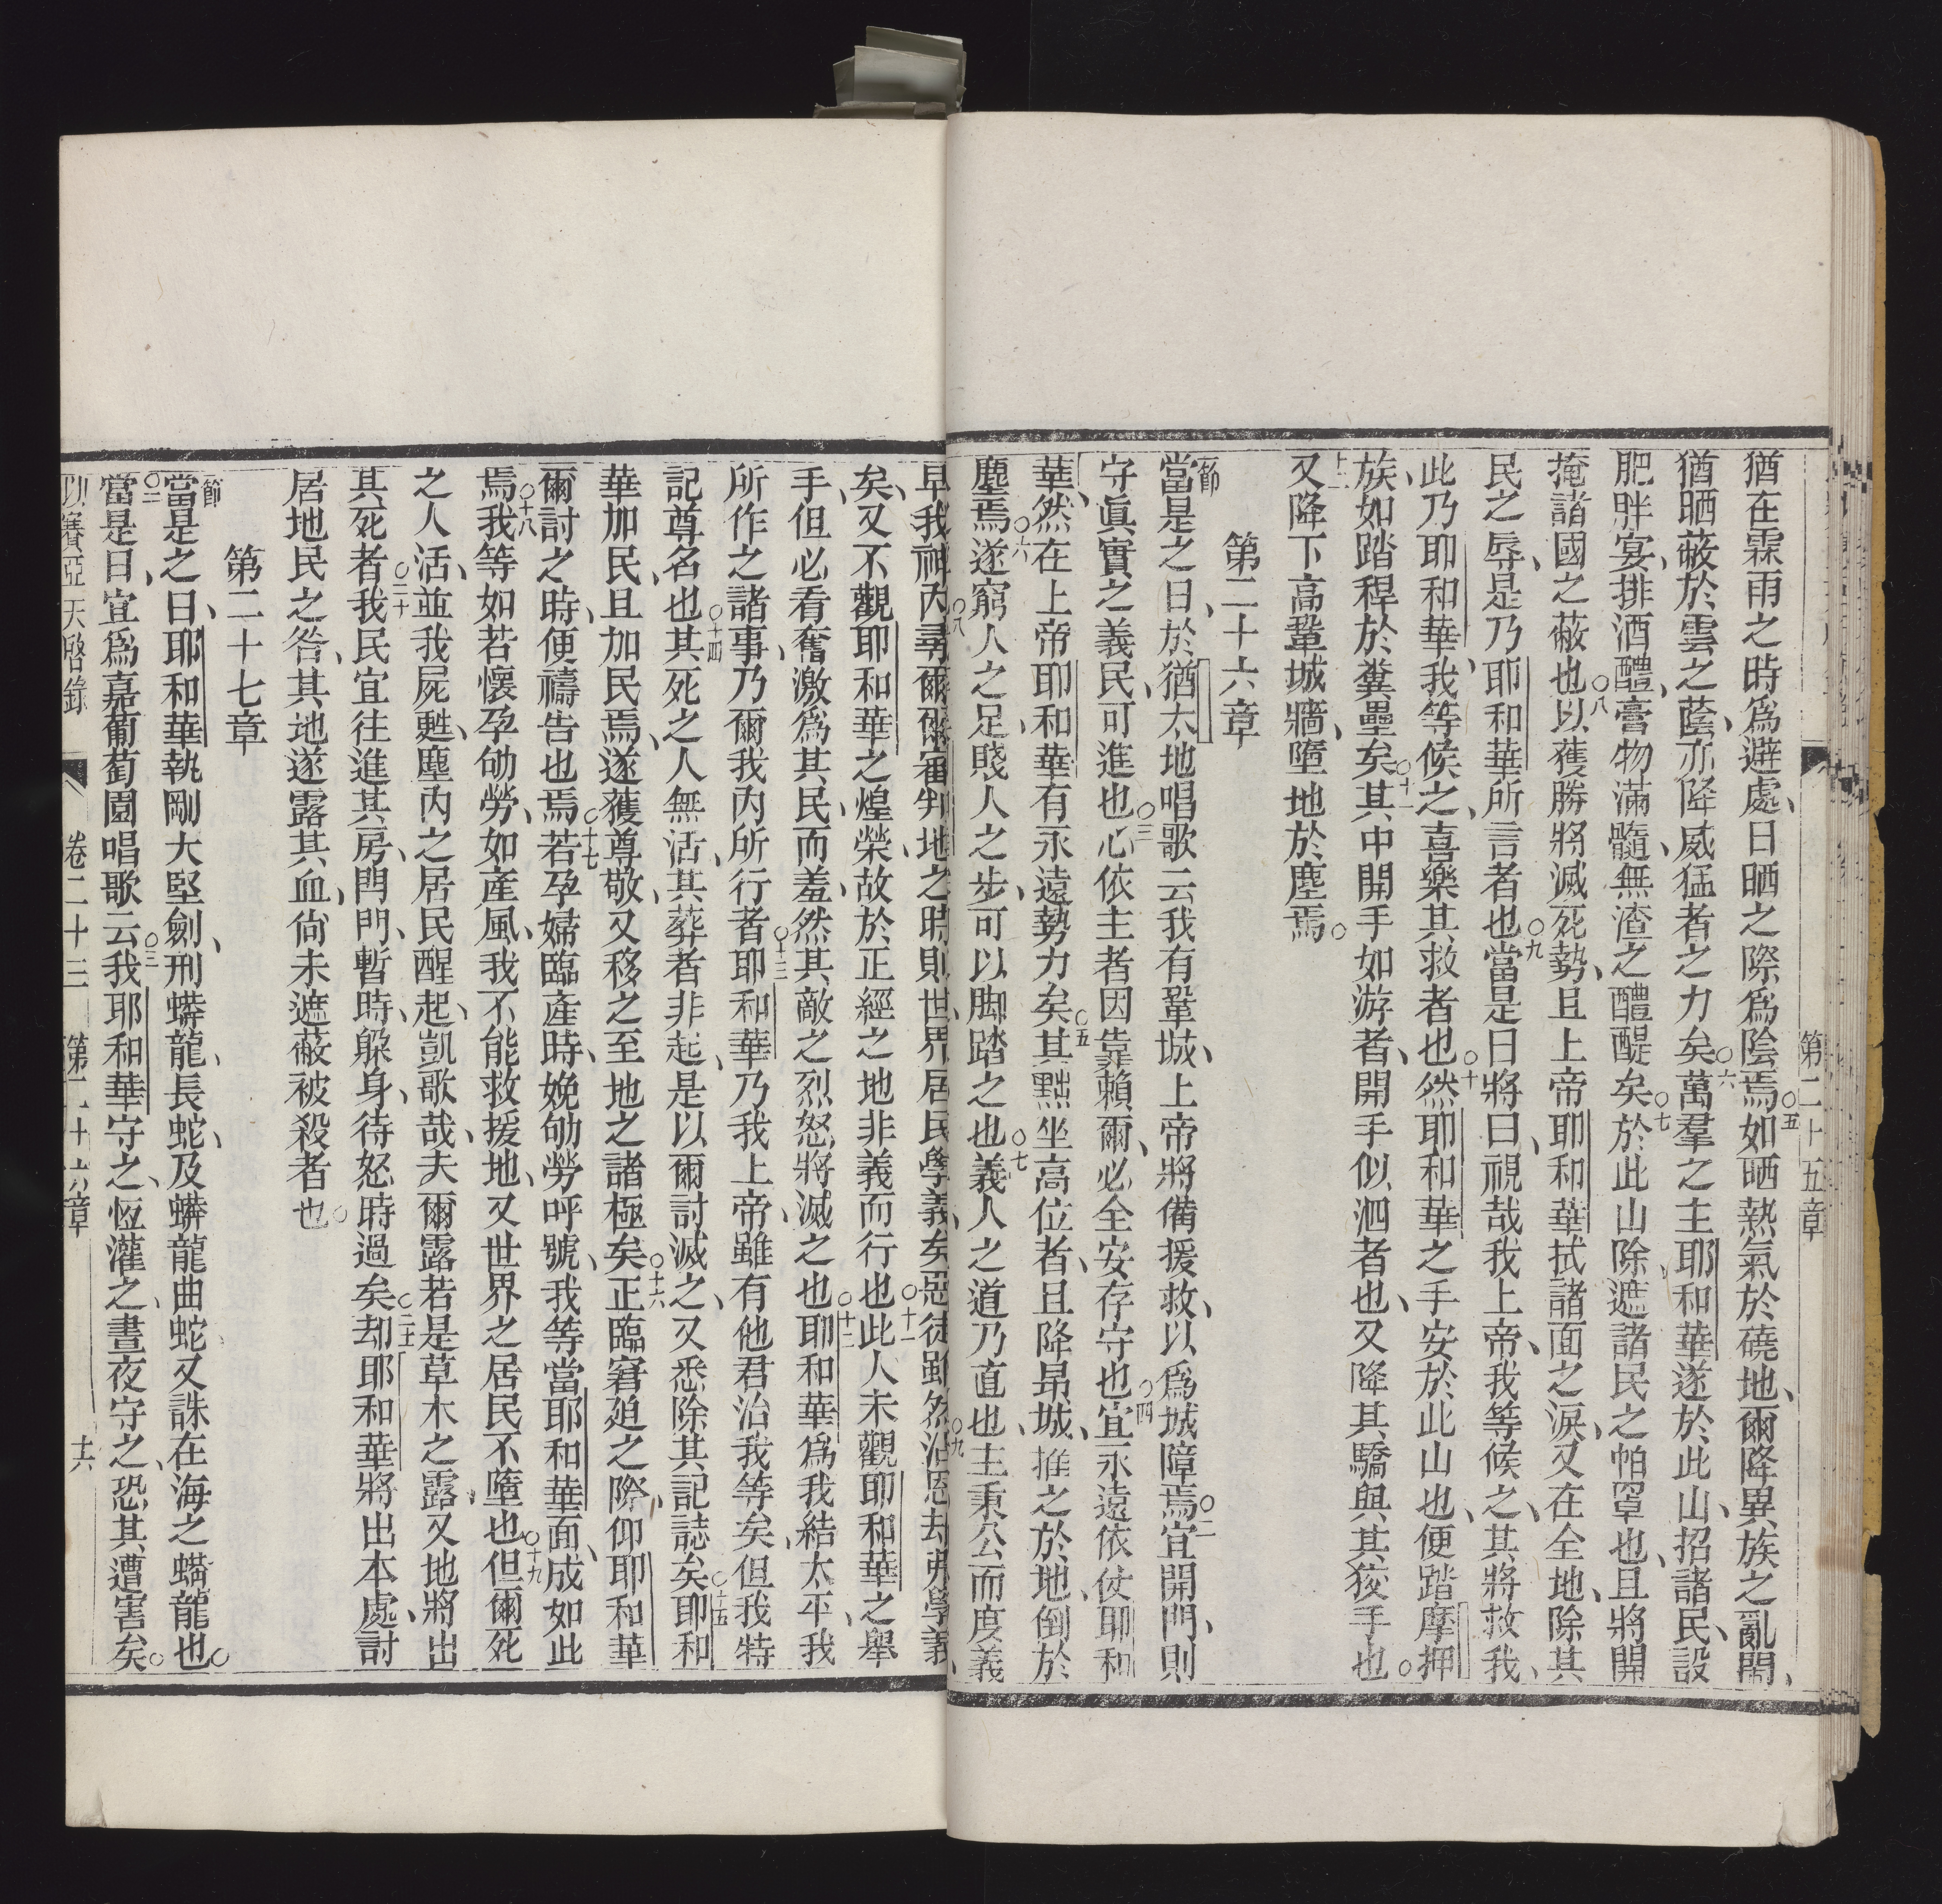 第二十五章
猶在霖雨之時爲避處、日晒之際爲陰焉○五如晒熱氣於磽地、爾降異族之亂閙、
猶晒蔽於雲之蔭、亦降威猛者之力矣○六萬羣之主耶和華遂於此山、招諸民、設
肥胖宴、排酒醴、膏物滿髓、無渣之醴醍矣○七於此山除遮諸民之帕罩也、且將開
掩諸國之蔽也○八以獲勝將滅死勢、且上帝耶和華拭諸面之淚、又在全地、除其
民之辱、是乃耶和華所言者也○九當是日將曰、視哉我上帝、我等候之、其將救我、
此乃耶和華、我等候之、喜樂其救者也○十然耶和華之手安於此山也、便踏摩押
族、如踏稈於糞壘矣○十一其中開手如游者、開手似泗者也、又降其驕與其狡手也○
十二又降下高鞏城牆、墮地於塵焉○
第二十六章
節當是之日、於猶太地唱歌云我有鞏城、上帝將備援救、以爲城障焉○二宜開門、則
守眞實之義民、可進也○三心依主者因靠賴爾、必全安存守也○四宜永遠依仗耶和
華、然在上帝耶和華有永遠勢力矣○五其黜坐高位者、且降昻城、推之於地、倒於
塵焉○六遂窮人之足、賤人之步、可以脚踏之也○七義人之道乃直也、主秉公而度義
早我神內尋爾爾審判地之時則世界居民學義矣惡徒雖然沾恩却弗學義
矣、又不觀耶和華之煌榮、故於正經之地非義而行也○十一此人未觀耶和華之舉
手、但必看奮激爲其民、而羞、然其敵之烈怒將滅之也○十二耶和華爲我結太平、我
所作之諸事、乃爾我內所行者○十三耶和華乃我上帝、雖有他君治我等矣、但我特
記尊名也○十四其死之人無活、其葬者非起、是以爾討滅之、又悉除其記誌矣○十五耶和
華加民、且加民焉、遂獲尊敬、又移之至地之諸極矣○十六正臨窘廹之際、仰耶和華
爾討之時、便禱告也焉○十七若孕婦臨產時、娩劬勞呼號、我等當耶和華面、成如此
焉○十八我等如若懷孕劬勞、如產風、我不能救援地、又世界之居民不墮也○十九但爾死
之人活、並我屍甦、塵內之居民醒起、凱歌哉、夫爾露若是草木之露、又地將出
其死者○二十我民宜往進其房、閂門、暫時、躱身、待怒時過矣○二十一却耶和華將出本處、討
居地民之咎、其地遂露其血、尙未遮蔽被殺者也○
第二十七章
節當是之日、耶和華執剛大堅劍、刑蟒龍、長蛇、及蟒龍曲蛇、又誅在海之蟒龍也○
○二當是日、宜爲嘉葡萄園唱歌云○三我耶和華守之、恆灌之、晝夜守之、恐其遭害矣○
以賽亞天啓錄 卷二十三 第二十六章 十六